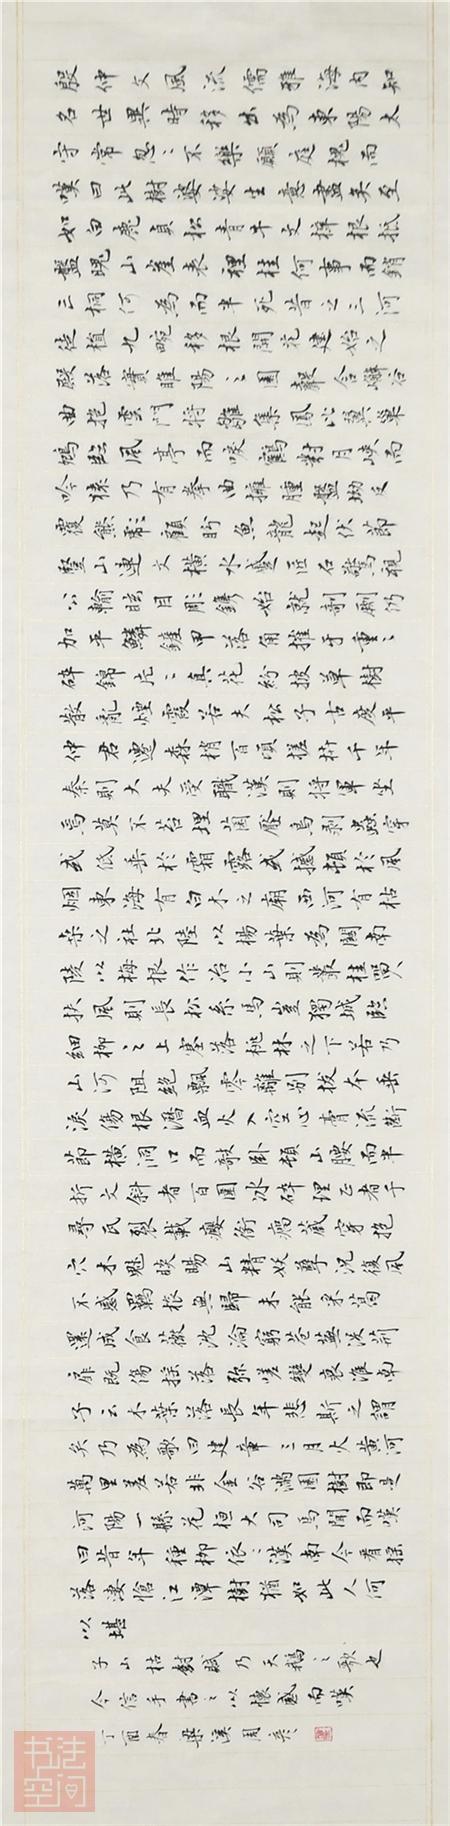 殷仲文風流儒雅海內知
名世異時移出為東陽太
守常忽〻不樂顧庭槐而
嘆曰此樹婆娑生意盡矣至
如白鹿貞松青牛文梓根抵
盤魄山崖表裡桂何事而銷
亡桐何為而半死昔之三河
徙植九畹移根開花建始之
殿落實睢陽之園聲含嶰谷
曲抱雲門將雛集鳳比翼巢
鴛臨風亭而唳鶴對月峽而
吟猿乃有拳曲擁腫盤坳反
覆熊彪顧盻魚龍起伏節
豎山連文橫水蹙匠石驚視
公輸眩目彫鐫始就剞劂仍
加平鱗鏟甲落角摧牙重〻
碎錦片〻真花紛披草樹
散亂煙霞若夫松子古度平
仲君遷森梢百頃槎枿千年
秦則大夫受職漢則將軍坐
焉莫不苔埋菌壓鳥剥蟲穿
或低垂於霜露或撼頓於風
烟東海有白木之廟西河有枯
桑之社北陸以楊葉為關南
陵以梅根作冶小山則叢桂留人
扶風則長松系馬豈獨城臨
細柳之上塞落桃林之下若乃
山河阻絕飄零離別拔本垂
淚傷根瀝血火入空心膏流斷
節橫洞口而欹卧頓山腰而半
折文斜者百圍冰碎理正者千
尋瓦裂載癭銜瘤藏穿抱
穴木魅睒睗山精妖孽況復風
不感羈旅無歸未能采葛
還成食薇沈淪窮巷蕪沒荊
扉既傷搖落彌嗟變衰淮南
子云木葉落長年悲斯之謂
矣乃為歌曰建章三月火黃河
萬里差若非金谷滿園樹即是
河陽一縣花桓大司馬聞而嘆
曰昔年種柳依〻漢南今看搖
落淒愴江潭樹猶如此人何
以堪
子山枯樹賦乃天鵝之歌也
今信手書之以懷感而嘆
丁酉春梁溪周
书法
空间